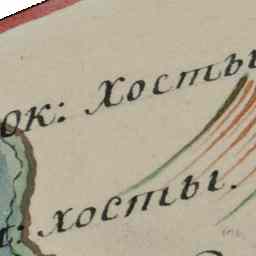 ок: хосты
: хосты.